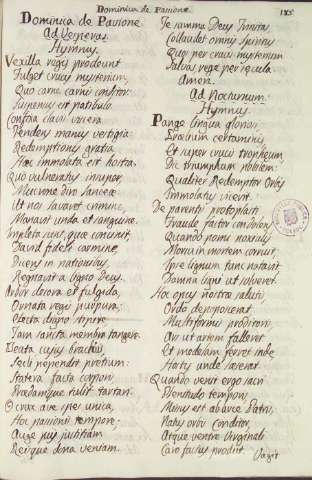 Dominica de Passione. 155
Dominica de Pasione.
Ad Vesperas
Hymnus.
Vexilla regis prodeunt
Fulget crucis mysterium,
Quo carne carnis conditor
Suspensus est patibulo.
Confixa clavis viscera
Tendens manus vestigia
Redemptionis gratia
Hic immolata est hostia.
Quo vulneratus insuper,
Mucrone diro lanceæ
Ut nos lavaret crimine,
Manavit unda et sanguine.
Impleta sunt, quæ concinit,
David fideli carmine,
Dicens in nationibus,
Regnavit a ligno Deus.
Arbor decora et fulgida,
Ornata regis purpura;
Electa digno stipite
Tam sancta membra tangere.
Beata cujus brachiis,
Sæcli pependit pretium:
Statera facta corporis
Prædamque tulit tartari.
O crux ave spes unica,
Hoc passionis tempore,
Auge piis justitiam
Reisque dona veniam.
Te summa Deus Trinitas,
Collaudet omnis spiritus
Quos per crucis mysterium
Salvas rege per sæcula.
Amen.
Ad Nocturnum.
Hymnus.
Pange lingua gloriosi,
Prælium certaminis,
Et super crucis tropheum,
Dic triumphum nobilem:
Qualiter Redemptor Orbis
Immolatus vicerit.
De parentis protoplasti
Fraude factor condolens
Quando pomi noxialis
Morsu in mortem corruit,
Ipse lignum tunc notavit
Damna ligni ut solveret.
Hoc opus nostræ salutis
Ordo depoposcerat
Multiformis proditoris
Ars ut artem falleret
Et medelam ferret inde,
Hostis unde læserat.
Quando venit ergo sacri
Plenitudo temporis,
Missus est ab arce Patris,
Natus orbis conditor,
Atque ventre Virginali
Caro factus prodiit.
Vagit